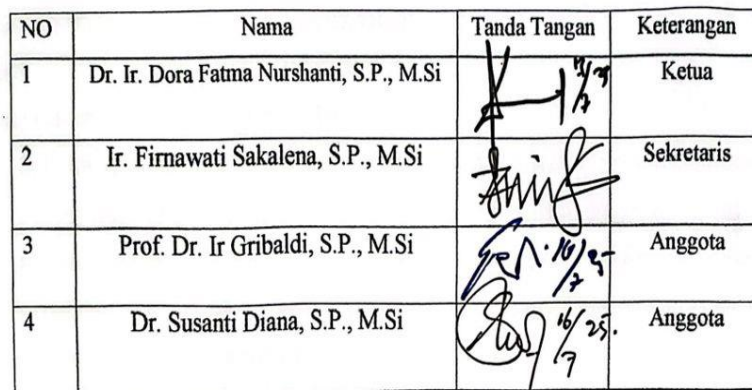 NO Nama Tanda Tangan Keterangan
1 Dr. Ir. Dora Fatma Nurshanti, S.P., M.Si Ketua
2 Ir. Firnawati Sakalena, S.P., M.Si Sekretaris
3 Prof. Dr. Ir Gribaldi, S.P., M.Si 16/7 25 Anggota
4 Dr. Susanti Diana, S.P., M.Si 16/7 25. Anggota